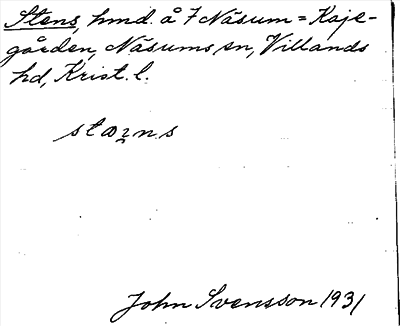 Stens, hmd. å 7 Näsum = Kaje-
gården, Näsums sn, Villands
hd, Krist. l.
stæns
John Svensson 1931